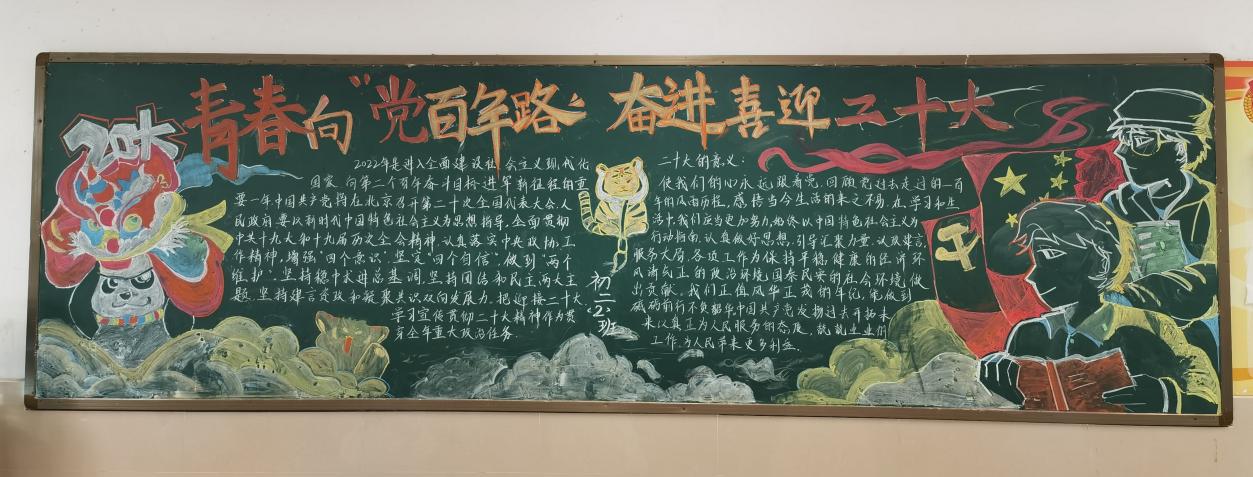 20大
青春向"党百年路" 奋进喜迎二十大
2022年是进入全面建设社会主义现代化
国家、向第二个百年奋斗目标进军新征程的重
要一年中国共产党将在北京召开第二十次全国代表大会.人
民政府要以新时代中国特色社会主义为思想指导,全面贯彻
中共十九大和十九届历次全会精神,认真落实中央政协工
作精神,增强"四个意识"坚定"四个自信"做到"两个
维护",坚持稳中求进总基调,坚持团结和民主两大主
题,坚持建言资政和凝聚共识双向发展力,把迎接二十大
学习宣传贯彻二十大精神作为贯
穿全年重大政治任务.
初二(2)班
二十大的意义:
使我们的心永远跟着党,回顾党过去走过的一百
年的风雨历程,感悟当今生活的来之不易,在学习和生
活中,我们应当更加努力,始终以中国特色社会主义为
行动指南,认真做好思想,引导汇聚力量,认政建言
服务大局,各项工作为保持平稳,健康的经济环
风清气正的政治环境,国泰民安的社会环境做
出贡献.我们正值风华正茂的年纪,能做到
砥砺前行不负韶华,中国共产党
未来以真正为人民服务的态度,兢兢业业的
工作,为人民带来更多利益.